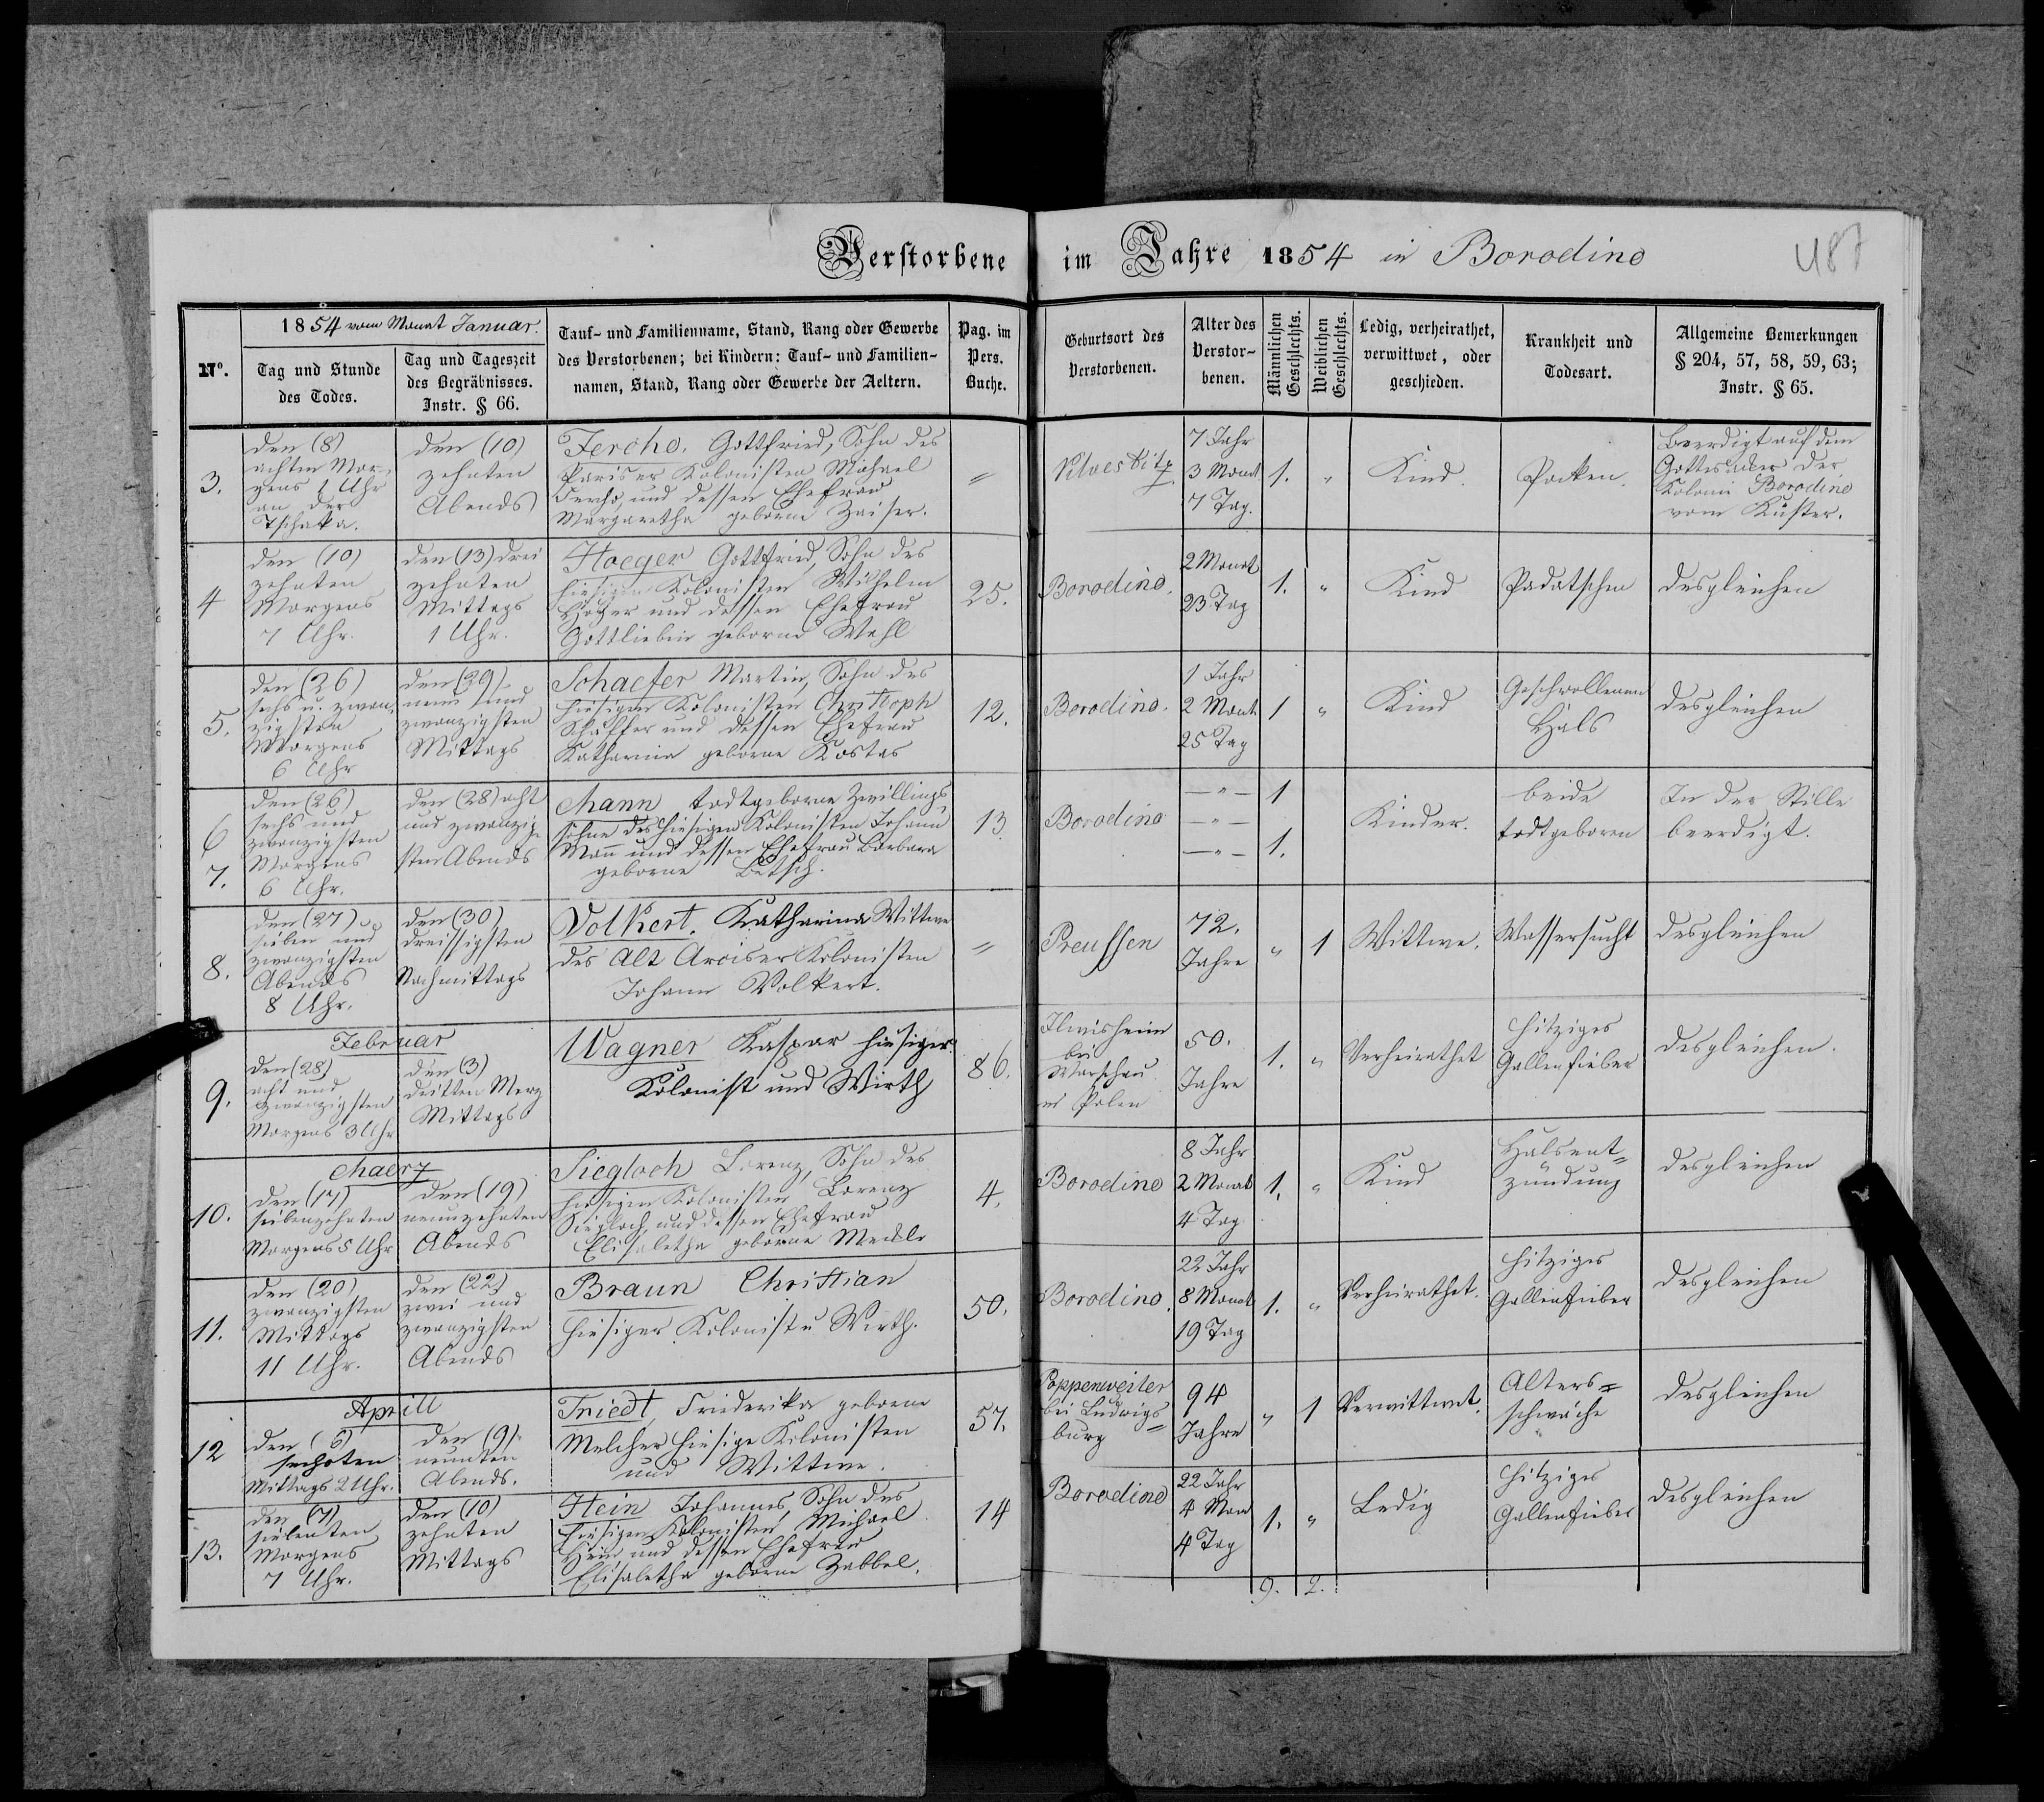 Verstorbene im Jahre 1854 in Borodino
487
No.
1854 vom Monat Januar.
Tag und Stunde
des Todes.
Tag und Tageszeit
des Begräbnisses.
Instr. § 66.
Tauf- und Familienname, Stand, Rang oder Gewerbe
des Verstorbenen; bei Kindern: Tauf- und Familien-
namen, Stand, Rang oder Gewerbe der Aeltern.
Pag. im
Pers.
Buche.
Geburtsort des
Verstorbenen.
Alter des
Verstor-
benen.
Männlichen
Geschlechts.
Weiblichen
Geschlechts.
Ledig, verheirathet,
verwittwet, oder
geschieden.
Krankheit und
Todesart.
Allgemeine Bemerkungen
§ 204, 57, 58, 59, 63;
Instr. § 65.
3.
den (8)
achten Mor-
gens 1 Uhr
an der
Tschaka.
den (10)
zehnten
Abends
Jercho. Gottfried, Sohn des
Pariser Kolonisten Michael
Jercho, und dessen Ehefrau
Margaretha geborne Zaiser.
"
7 Jahr
3 Monat
7 Tag.
1.
"
Kind.
Pocken.
Beerdigt auf dem
Gottesacker der
Kolonie Borodino
vom Küster.
4
den (10)
zehnten
Morgens
7 Uhr.
den (13) drei
zehnten
Mittags
1 Uhr.
Hoeger Gottfried, Sohn des
hiesigen Kolonisten Wilhelm
Höger und dessen Ehefrau
Gottliebin geborne Wahl
25.
Borodino.
2 Monat
23 Tag
1.
"
Kind
Padatschen
desgleichen
5.
den (26)
sechs u. zwan-
zigsten
Morgens
6 Uhr
den (29)
neun und
zwanzigsten
Mittags
Schaefer Martin, Sohn des
hiesigen Kolonisten Christoph
Schäffer und dessen Ehefrau
Katharina geborne Kostas
12.
Borodino.
1 Jahr
2 Monat
25 Tag
1
"
Kind
Geschwollenen
Hals
desgleichen
6
7.
den (26)
sechs und
zwanzigsten
Morgens
6 Uhr.
den (28) acht
und zwanzig-
sten Abends
Mann todtgeborne Zwillings-
söhne des hiesigen Kolonisten Johann
Mann und dessen Ehefrau Barbara
geborne Betsch.
13.
Borodino
— " —
— " —
— " —
1
1.
Kinder.
beide
todtgeboren
In der Stille
beerdigt.
8.
den (27)
sieben und
zwanzigsten
Abends
8 Uhr.
den (30)
dreissigsten
Nachmittags
Volkert. Katharina Wittwe
des Alt Arciser Kolonisten
Johann Volkert.
"
Preussen
72.
Jahre
"
1
Wittwe.
Wassersucht
desgleichen
Februar
9.
den (28)
acht und
zwanzigsten
Morgens 3 Uhr
den (3)
dritten Merz
Mittags
Wagner Kaspar hiesiger
Kolonist und Wirth
86.
bei
Warschau
in Polen
50.
Jahre
1.
"
Verheirathet
Hitziges
Gallenfieber
desgleichen.
Maerz
10.
den (17)
siebenzehnten
Morgens 5 Uhr
den (19)
neunzehnten
Abends
Siegloch Lorenz, Sohn des
hiesigen Kolonisten Lorenz
Siegloch und dessen Ehefrau
Elisabetha geborne
4.
Borodino
8 Jahr
2 Monat
4 Tag
1.
"
Kind
Halsent-
zündung
desgleichen
11.
den (20)
zwanzigsten
Mittags
11 Uhr.
den (22)
zwei und
zwanzigsten
Abends
Braun Christian
hiesiger Kolonist u Wirth.
50.
Borodino.
22 Jahr
8 Monat
19 Tag
1.
"
Verheirathet.
Hitziges
Gallenfieber
desgleichen
Aprill
12
den (6)
sechsten
Mittags 2 Uhr.
den (9)
neunten
Abends.
Triedt Friederika geborne
Melcher hiesige Kolonisten
und Wittwe.
57.
Poppenweiler
bei Ludwigs-
burg
94
Jahre
"
1
Verwittwet.
Alters-
schwäche
desgleichen
13.
den (7)
siebenten
Morgens
7 Uhr.
den (10)
zehnten
Mittags
Hein Johannes, Sohn des
hiesigen Kolonisten Michael
Hein und dessen Ehefrau
Elisabetha geborne Zabbel.
14
Borodino
22 Jahr
4 Mon
4 Tag
1.
"
Ledig
Hitziges
Gallenfieber
desgleichen
9. 2.